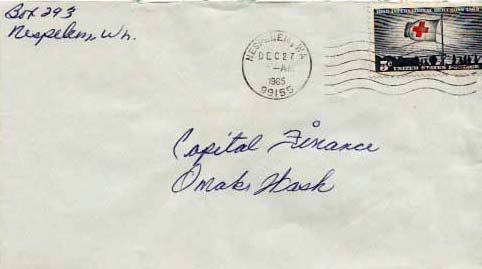 Box 293
Nespelem, Wn.
NESPELEM, WA
DEC 27
-AM
1965
99155
1863 INTERNATIONAL RED CROSS 1963
5¢
UNITED STATES POSTAGE
Capital Finance
Omak, Wash